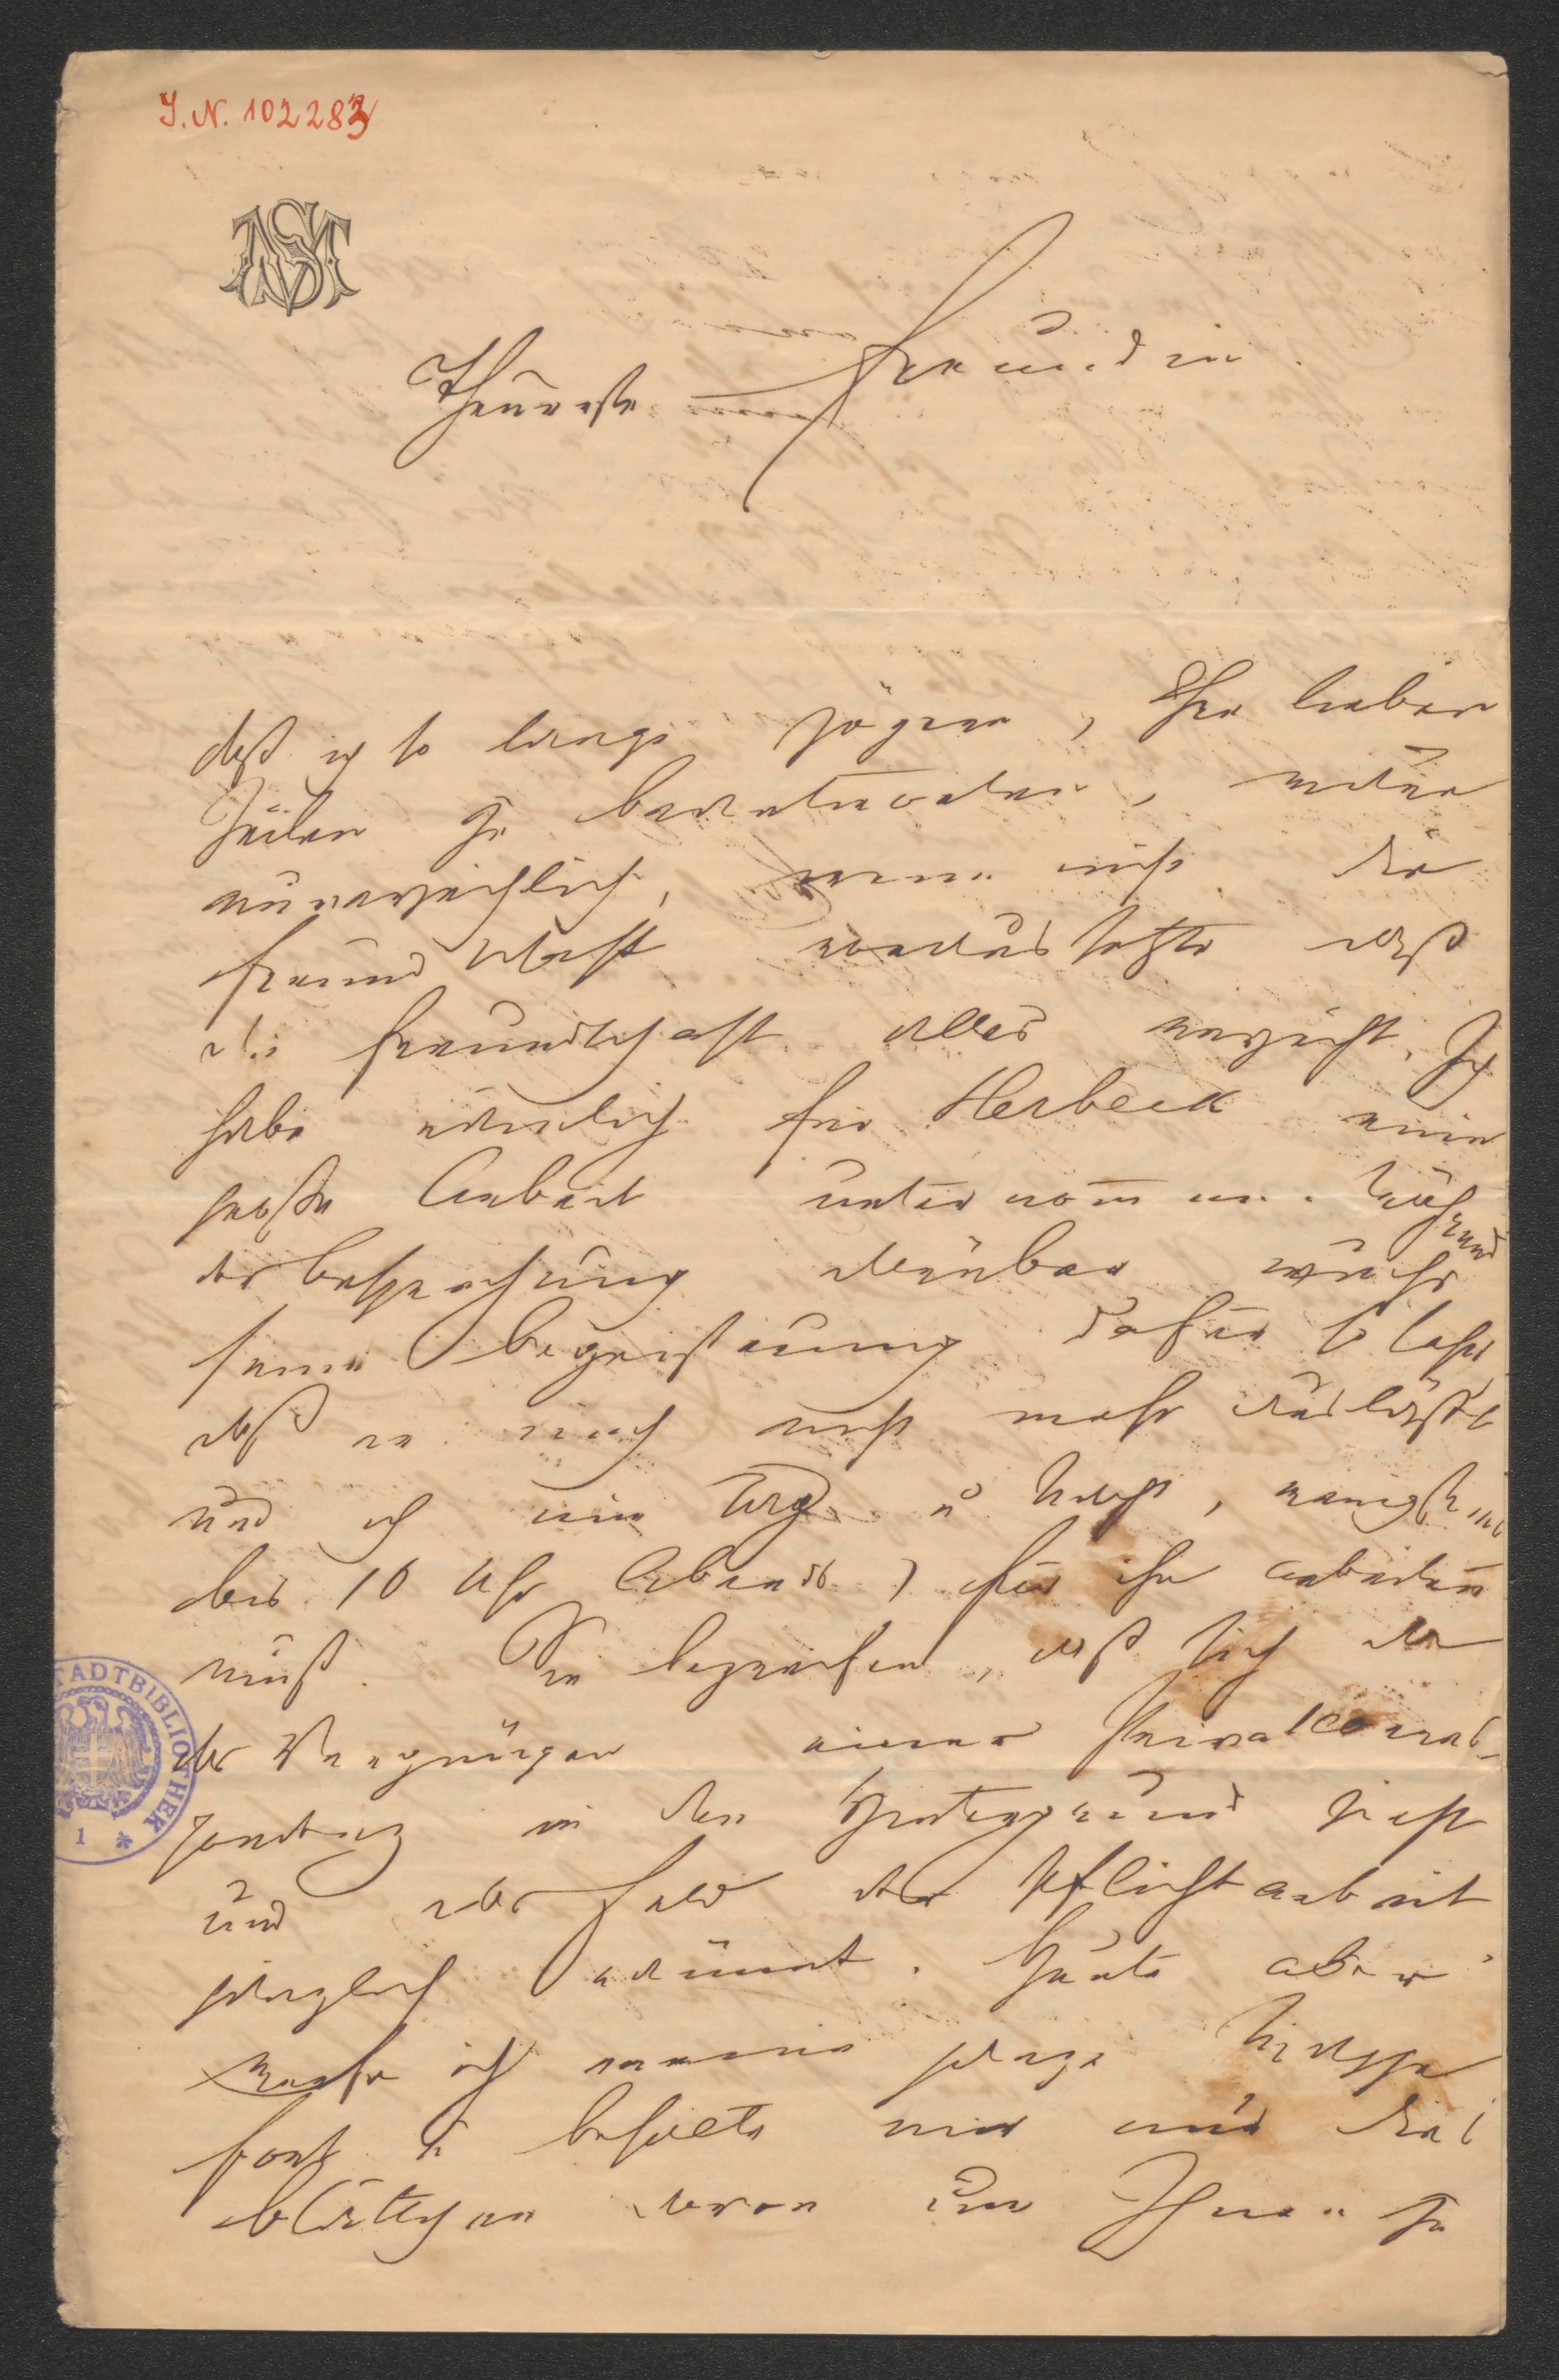 J. N. 102283
MS
Theuerste Freundin
daß ich so lange zögere, Ihre lieben
Zeilen zu beantworten, wäre
unverzeihlich, wenn nicht die
Freundschaft voraussetzte daß
die Freundschaft alles verzeiht. Ich
habe nämlich für Herbeck eine
große Arbeit unternommen. Während
der Besprechung darüber wuchs
seine Begeisterung dafür so sehr,
daß er mich nicht mehr ausläßt
und ich nun Tag u Nacht, wenigstens
bis 10 Uhr Abends, für ihn arbeiten
muß. Sie begreifen, daß sich da
das Vergnügen einer Privatcorres-
pondenz in den Hintergrund zieht
und das Feld der Pflichtarbeit
gänzlich räumt. Heute aber
werfe ich meine ganze
fort u behielte mir nur dies
Blättchen davon um Ihnen zu
STADTBIBLIOTHEK
1 *